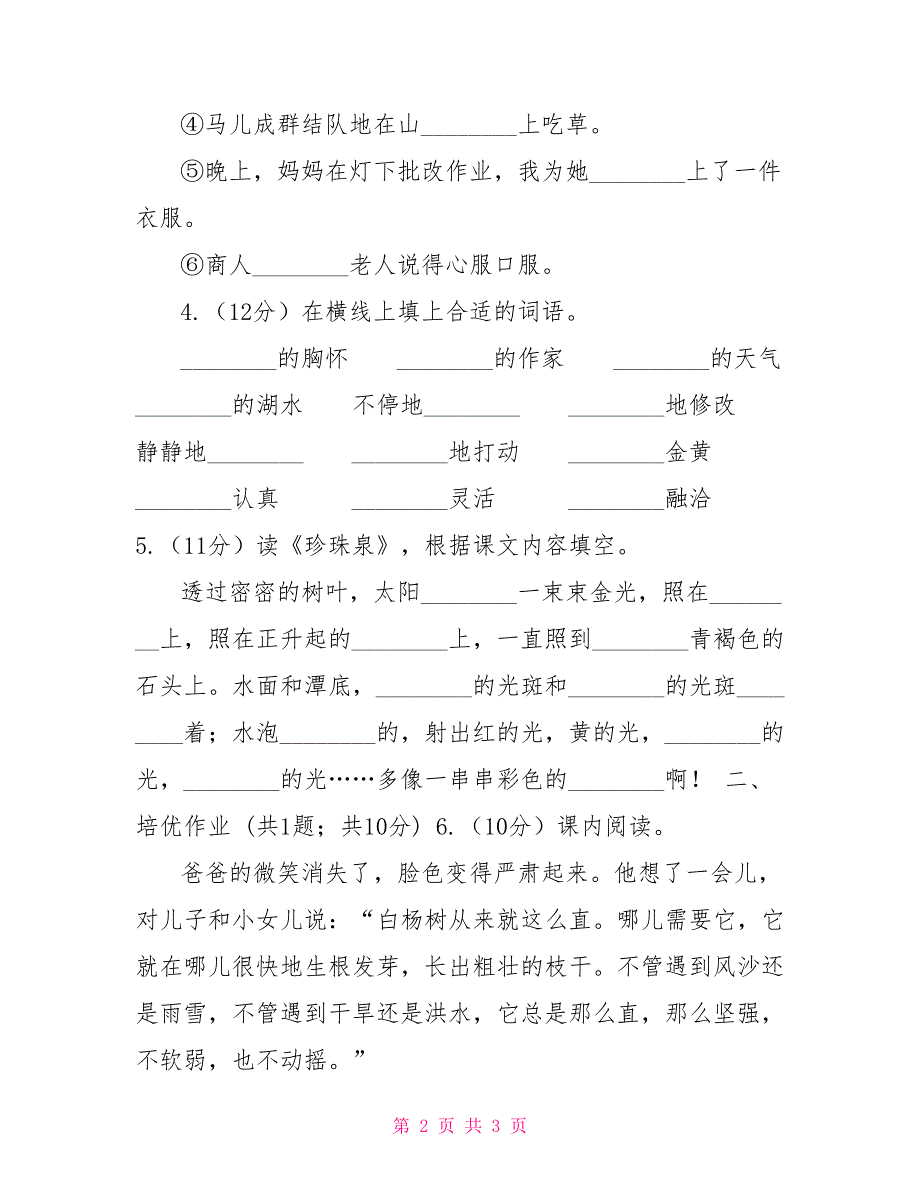 ④马儿成群结队地在山________上吃草。
⑤晚上，妈妈在灯下批改作业，我为她________上了一件
衣服。
⑥商人________老人说得心服口服。
4.（12分）在横线上填上合适的词语。
________的胸怀  ________的作家  ________的天气
________的湖水  不停地________  ________地修改
静静地________  ________地打动  ________金黄
________认真  ________灵活  ________融洽
5.（11分）读《珍珠泉》，根据课文内容填空。
透过密密的树叶，太阳________一束束金光，照在______
__上，照在正升起的________上，一直照到________青褐色的
石头上。水面和潭底，________的光斑和________的光斑____
____着；水泡________的，射出红的光，黄的光，________的
光，________的光……多像一串串彩色的________啊！ 二、
培优作业 (共1题；共10分) 6.（10分）课内阅读。
爸爸的微笑消失了，脸色变得严肃起来。他想了一会儿，
对儿子和小女儿说：“白杨树从来就这么直。哪儿需要它，它
就在哪儿很快地生根发芽，长出粗壮的枝干。不管遇到风沙还
是雨雪，不管遇到干旱还是洪水，它总是那么直，那么坚强，
不软弱，也不动摇。”
第 2 页 共 3 页